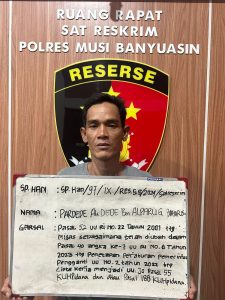 RUANG RAPAT
SAT RESKRIM
POLRES MUSI BANYUASIN
RESERSE
SP. HAN : SP Han/97/IX/RES
NAMA : PARDEDE Als DEDE Bin
PASAL : Pasal 52 UU RI No. 22 Tahun 2001 ttg
Migas sebagaimana telah diubah dengan
Pasal 40 angka ke-7 UU RI No. 6 Tahun
2023 ttg Penetapan Peraturan Pemerintah
Pengganti UU No. 2 Tahun 2022 ttg
Cipta Kerja menjadi UU Jo Pasal 55
KUHPidana dan atau Pasal 188 KUHPidana